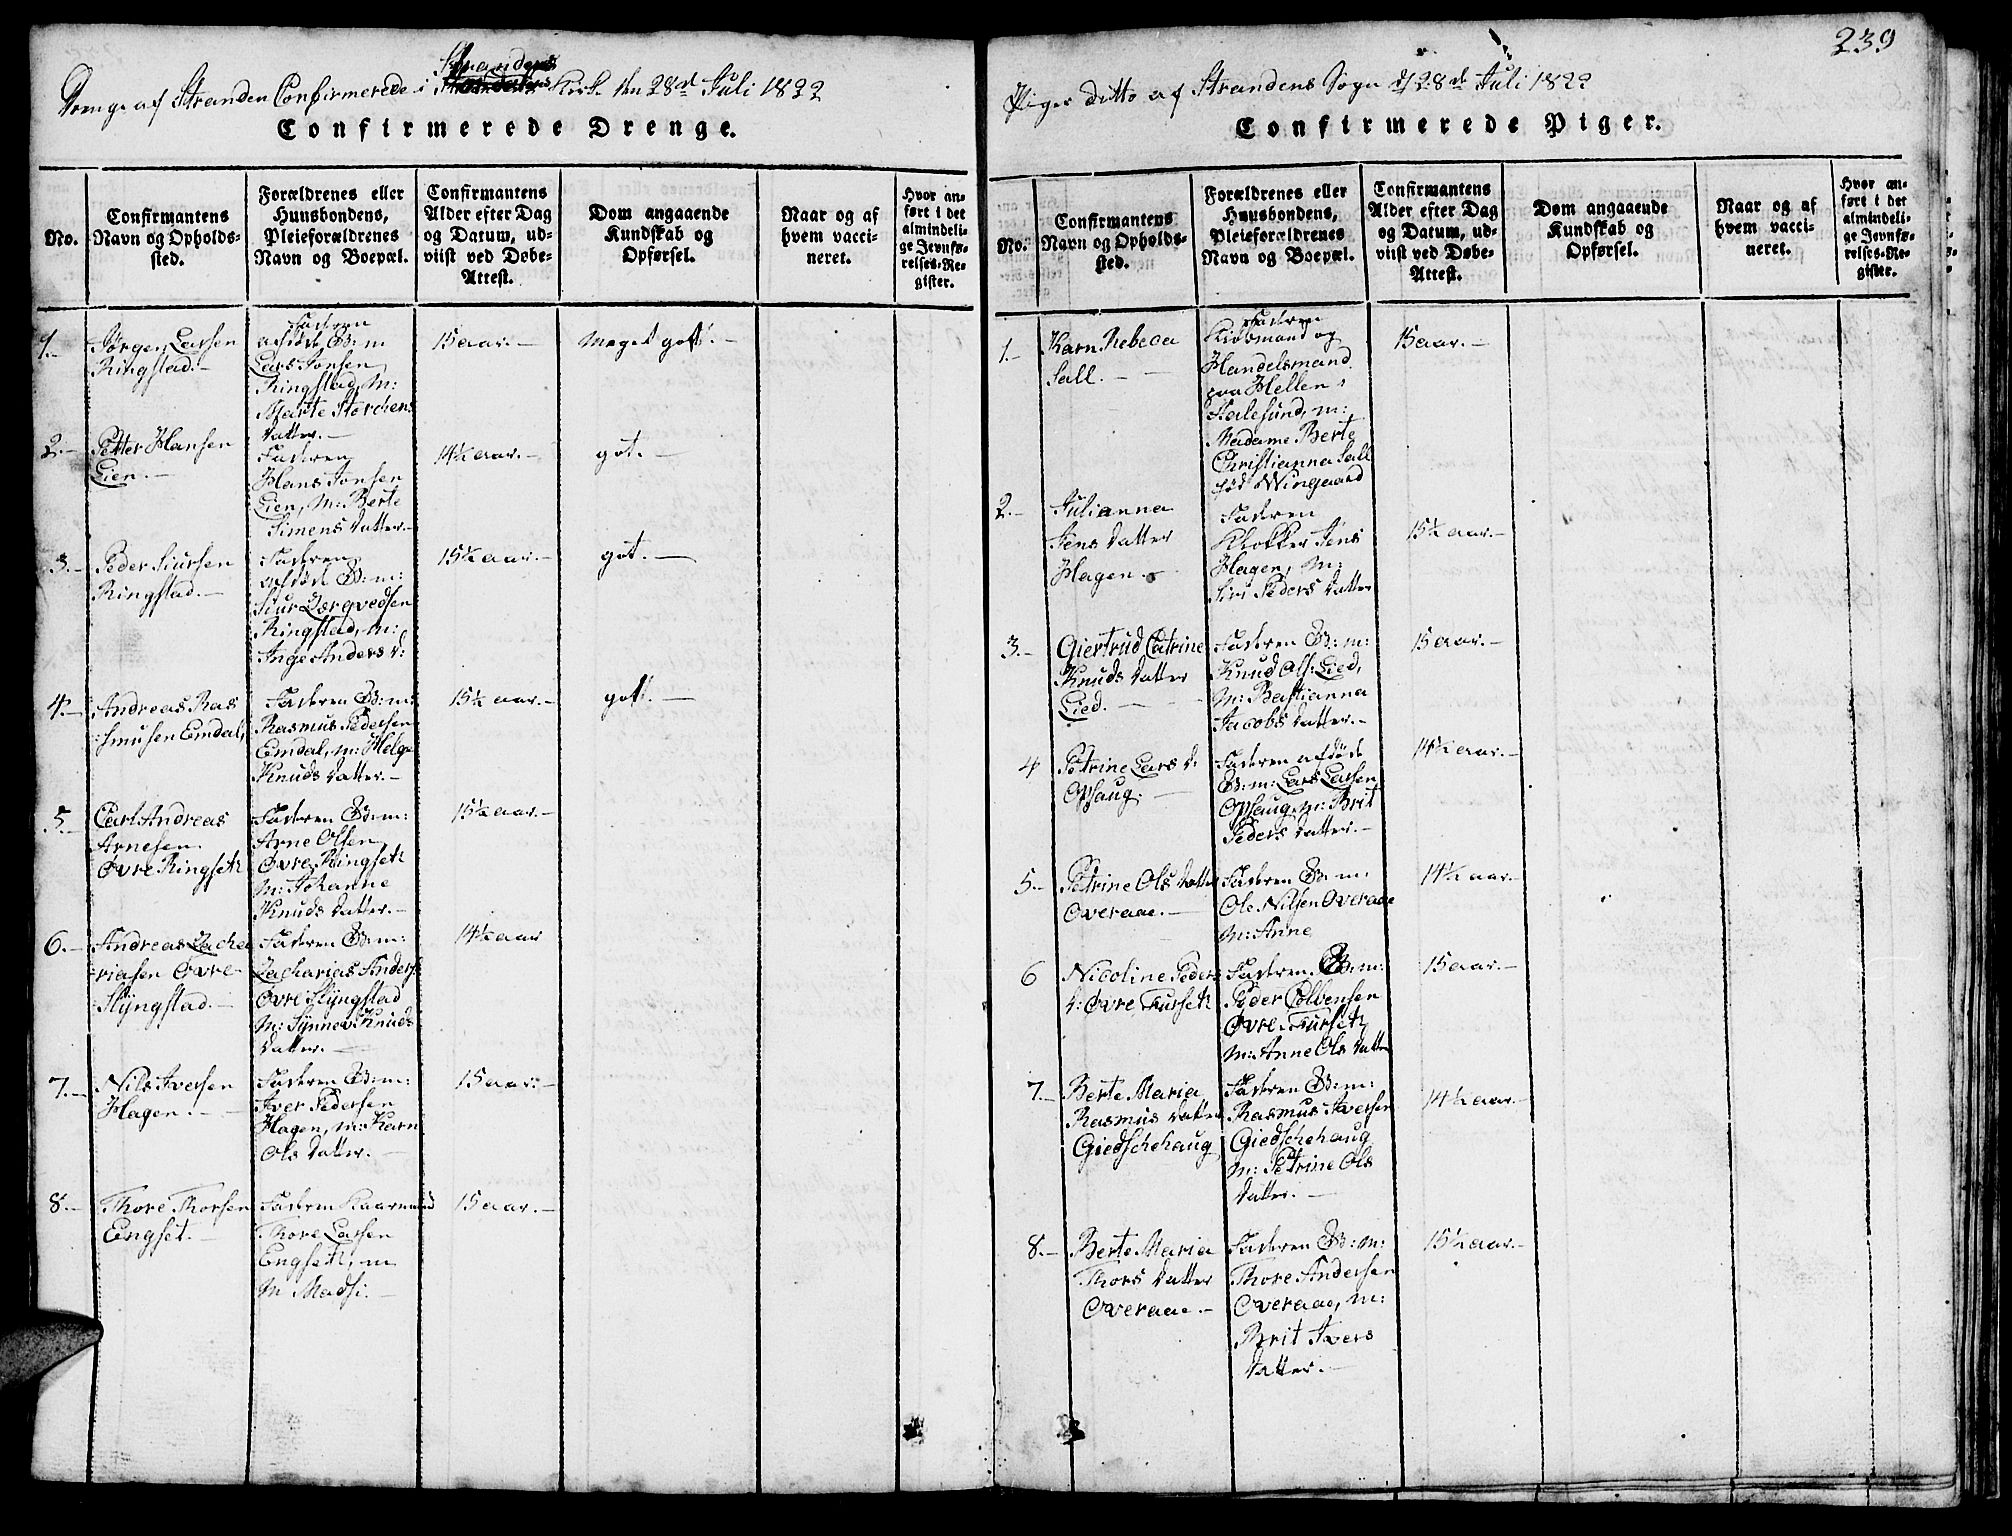 Drenge af Stranden Confirmerede i Strandens Kirke den 28de Juli 1822
Confirmerede Drenge.
No.
Confirmantens
Navn og Opholds-
sted.
Forældrenes eller
Huusbondens,
Pleieforældrenes
Navn og Boepæl.
Confirmantens
Alder efter Dag
og Datum, ud-
viist ved Døbe-
Attest.
Dom angaaende
Kundskab og
Opførsel.
Naar og af
hvem vacci-
neret.
Hvor an-
ført i det
almindeli-
ge Jevnfø-
relses-Re-
gister.
1.-
Jørgen Larsen
Ringstad.-
Faderen
afdøde B:m
Lars Jonsen
Ringstad, M:
Marte Storchens
datter.-
15 aar.-
Meget gott.-
2.-
Petter Hansen
Lien.-
Faderen
Hans Jonsen
Lien, M: Berte
Simens datter.-
14½ aar.-
got.-
3.-
Peder Siursen
Ringstad.-
Faderen
afdøde B:m:
Siur Zergvedsen
Ringstad, m:
Inge Anders d:
15½ aar.-
got.-
4.-
Andreas Ras
smusen Emdal,
Faderen B:m:
Rasmus Pedersen
Emdal, m: Helge
Knuds datter.-
15½ aar.-
gott.-
5.-
Carl Andreas
Arnesen
Øvre Ringseth
Faderen B:m:
Arne Olsen
Øvre Ringseth
M: Johanne
Knuds datter.-
15½ aar.-
6.-
Andreas Zacha
riasen Øvre
Slyngstad.-
Faderen B:m:
Zacharias Anders
Øvre Slyngstad
M: Synnev Knuds
datter.-
14½ aar
7.-
Nils Iversen
Hagen.-
Faderen B:m:
Iver Pedersen
Hagen, m: Karn
Ols datter.-
15 aar.-
8.-
Thore Thorsen
Engset.-
Faderen Kaarmand
Thore Larsen
Engseth, m
M Madsi.-
15 aar.-
239
Piger ditto af Strandens Sogn d 28de Juli 1822
Confirmerede Piger.
No.
Confirmantens
Navn og Opholds-
sted.
Forældrenes eller
Huusbondens,
Pleieforældrenes
Navn og Boepæl.
Confirmantens
Alder efter Dag
og Datum, ud-
viist ved Døbe-
Attest.
Dom angaaende
Kundskab og
Opførsel.
Naar og af
hvem vacci-
neret.
Hvor an-
ført i det
almindeli-
ge Jevnfø-
relses-Re-
gister.
1.-
Karn Rebeca
Sall.-
Faderen
Kiøbmand og
Handelsmand
paa Hellen i
Aalesund, m:
Madame Berte
Christianna Sall
fød Wingaard
15 aar.-
2.-
Julianna
Jens datter
Hagen.-
Faderen
Klokker Jens
Hagen, M:
Siri Peders datter
15½ aar.-
3.-
Giertrud Catrine
Knuds datter
Lied.-
Faderen B:m:
Knud Ols: Lied,
M: Bastianna
Jacobs datter.-
15 aar.-
4
Petrine Lars d:
Opsaug.-
Faderen afdøde
B:m: Lars Larsen
Opsaug, m: Brit
Peders datter.-
14½ aar.-
5.-
Petrine Ols datter
Overaae.-
Faderen B:m:
Ole Nilsen Overaae
M: Anne
14½ aar.-
6
Nicoline Peders
d: Øvre Furseth
Faderen B:m:
Peder Colbensen
Øvre Furseth
m: Anne Ols datter
15 aar.-
7.-
Berte Maria
Rasmus datter
Giedschehaug
Faderen B:m:
Rasmus Iversen
Giedschehaug
M: Petrine Ols
datter.-
14½ aar.-
8.-
Berte Maria
Thors datter
Overaae.-
Faderen B:m:
Thore Andersen
Overaae, m:
Brit Ivers
datter.-
15½ aar.-